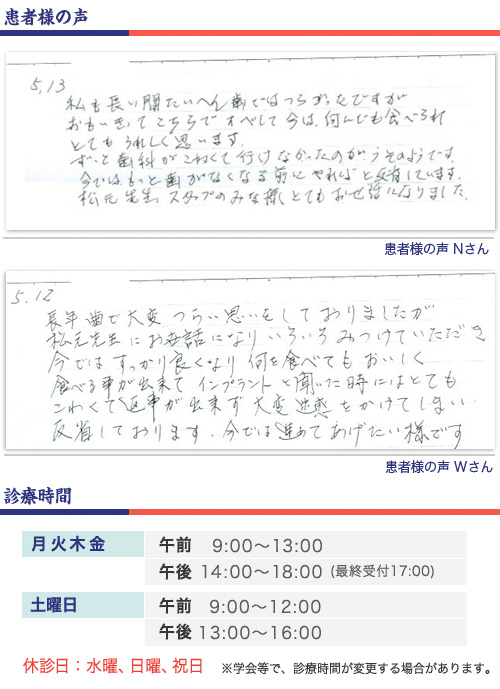 患者様の声
5,13
私も長い間たいへん歯ではつらかったですが
おもいきってこちらですべてし今は、何んでも食べられ
とてもうれしく思います。
ずっと歯科がこわくて行けなかったのがうそのようです。
今では、もっと歯がなくなる前にやればと反省しています。
松元先生、スタッフのみな様とてもお世話になりました。
患者様の声 Nさん
5.12
長年歯で大変つらい思いをしておりましたが
松元先生にお世話になりいろいろみつけていただき
今ではすっかり良くなり何を食べてもおいしく
食べる事が出来てインプラントと聞いた時にはとても
こわくて返事が出来ず大変迷惑をかけてしまい
反省しております、今では進めてあげたい様です
患者様の声 Wさん
診療時間
月火木金 午前 9:00〜13:00
午後 14:00〜18:00 (最終受付17:00)
土曜日 午前 9:00〜12:00
午後 13:00〜16:00
休診日：水曜、日曜、祝日 ※学会等で、診療時間が変更する場合があります。